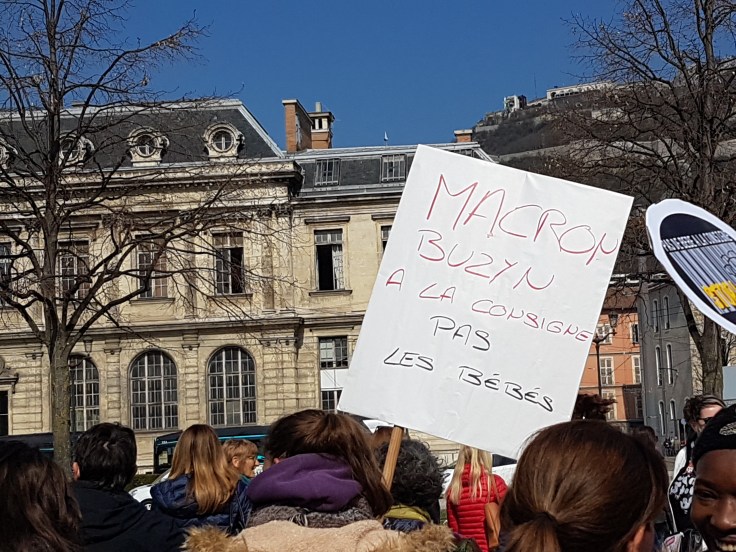 MACRON
BUZYN
A LA CONSIGNE
PAS
LES BÉBÉS